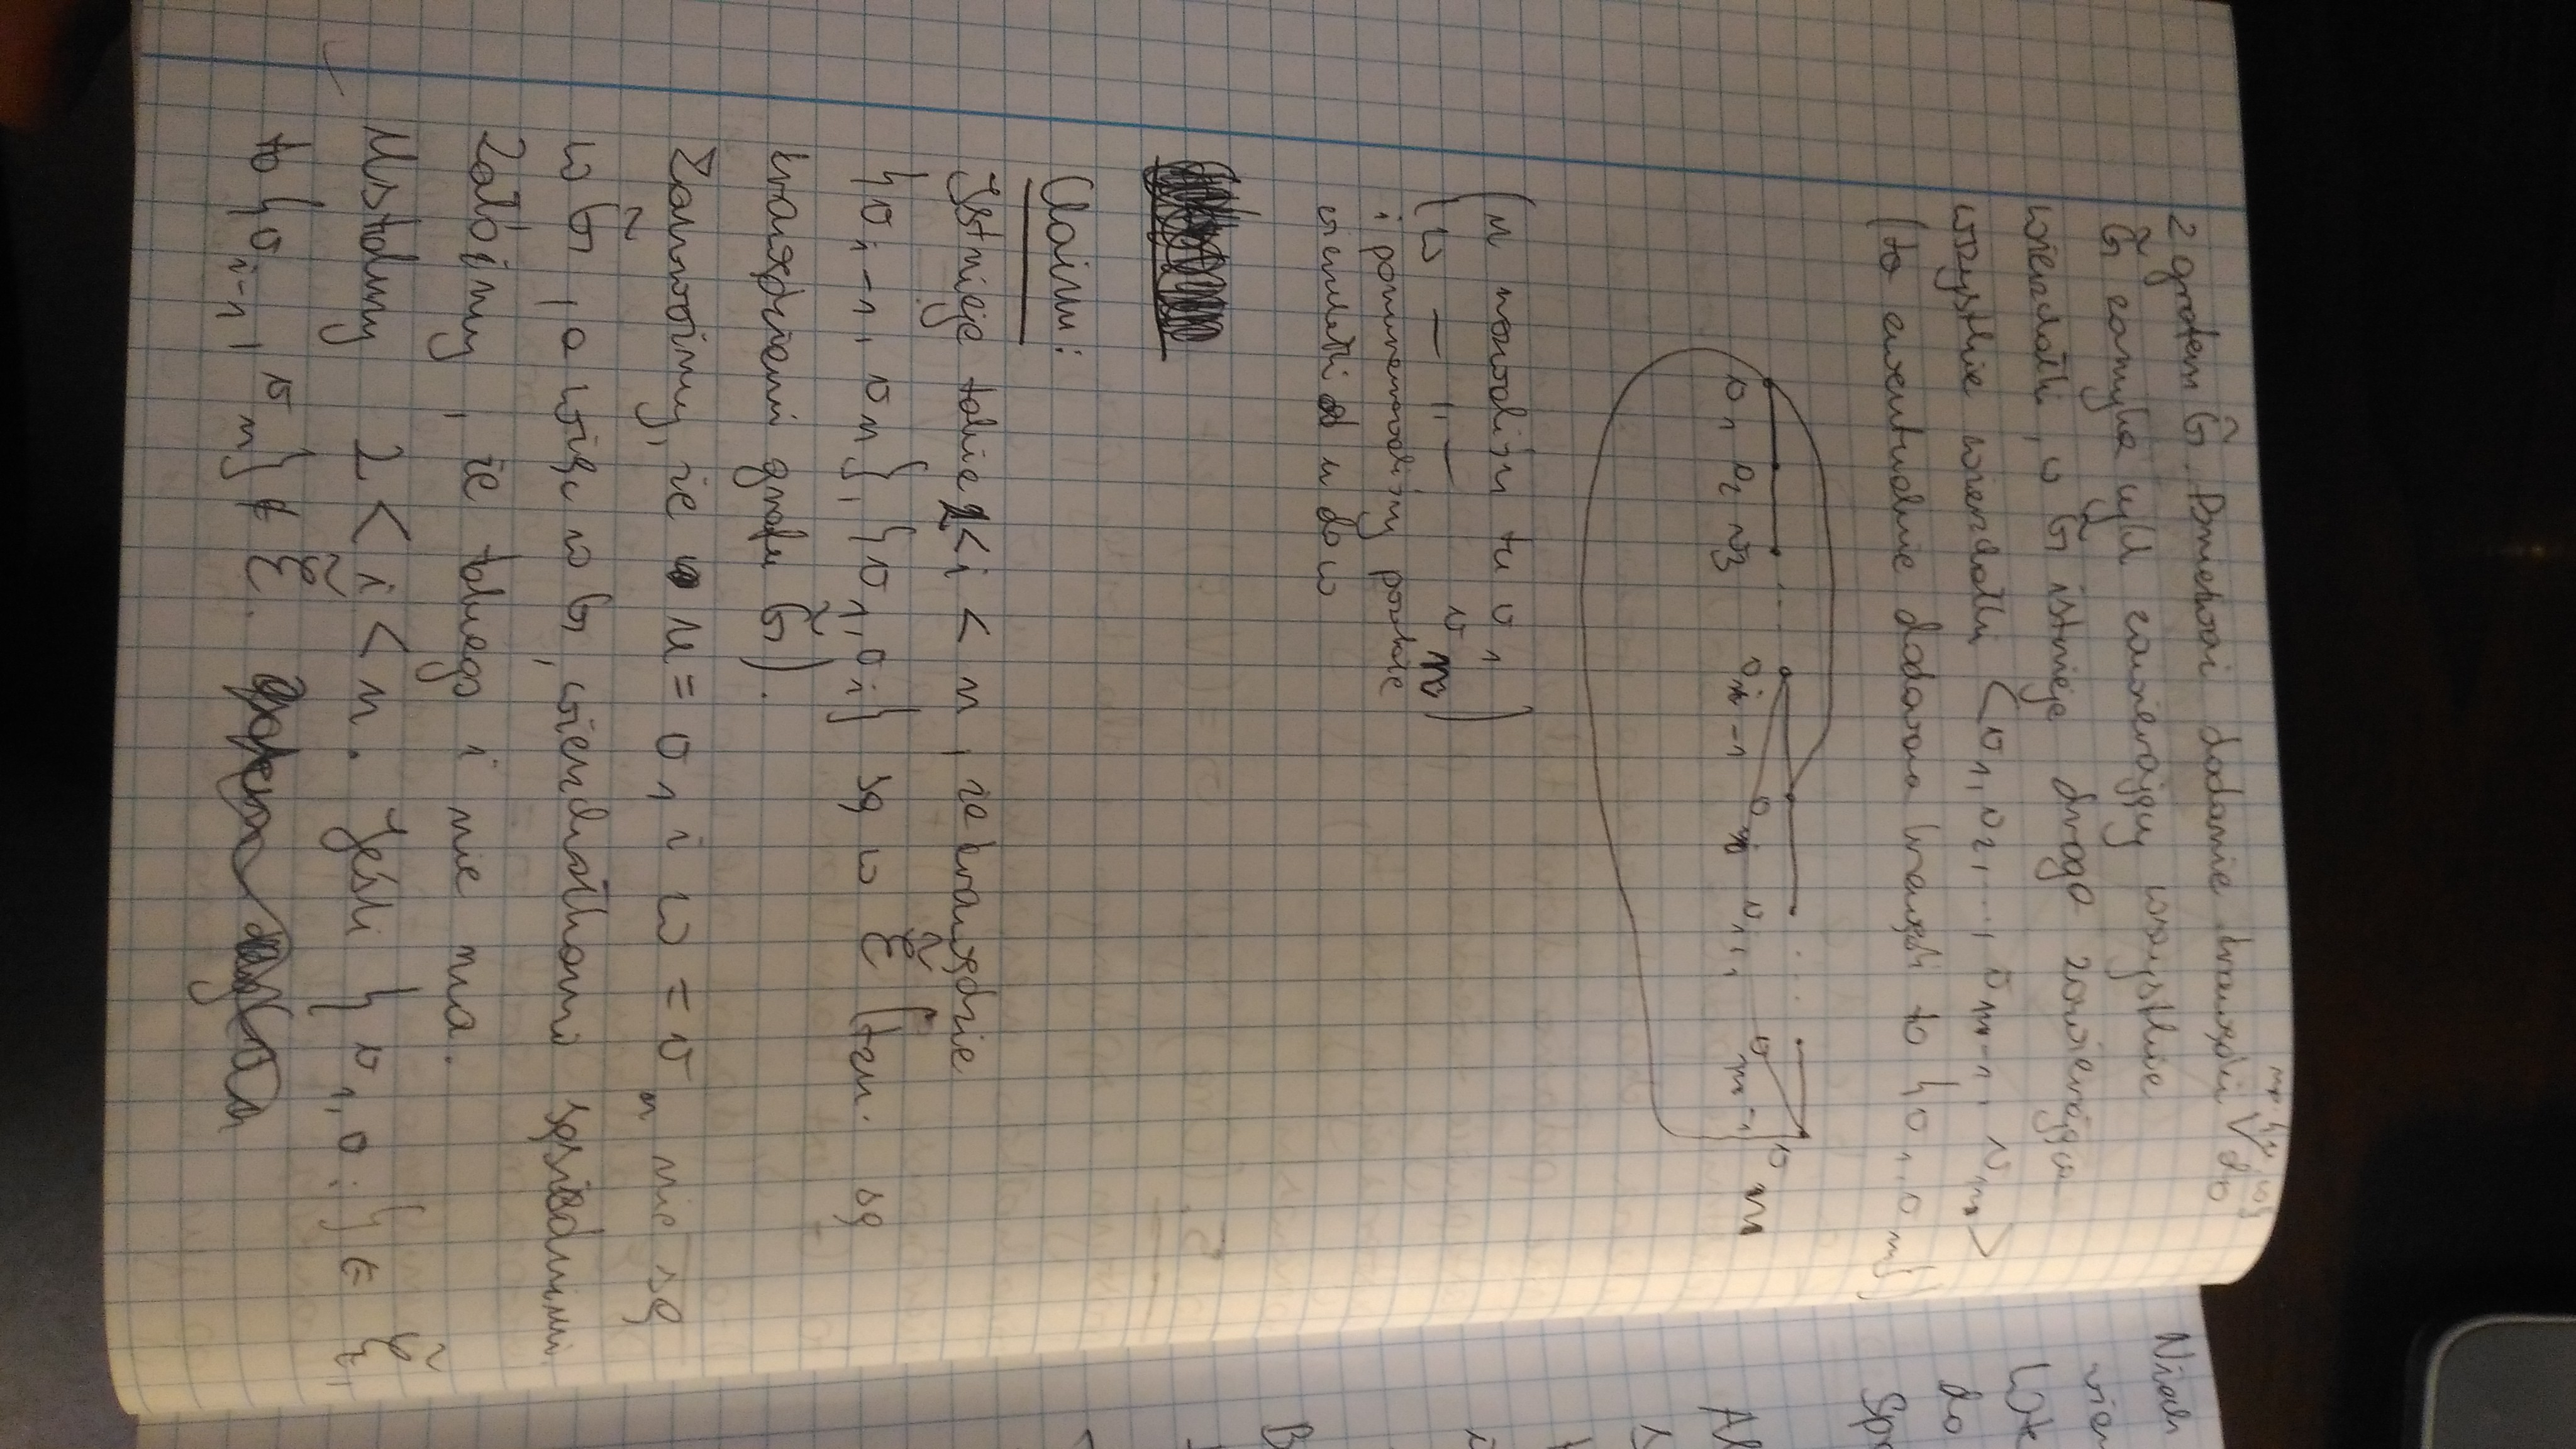 np. {u, w}
z grafem G̃. Ponieważ dodanie krawędzi ∨ do
G̃ zamyka cykl zawierający wszystkie
wierzchołki, w G̃ istnieje droga zawierająca
wszystkie wierzchołki <v₁, v₂, ..., vₙ₋₁, vₙ>
(to ewentualnie dodawana krawędź to {v₁, vₙ})
v₁ v₂ v₃ ... vᵢ₋₁ vᵢ vᵢ₊₁ ... vₙ₋₁ vₙ
(u nazwaliśmy tu v₁
w — " — vₙ)
i ponumerowaliśmy po kolei
wierzchołki od u do w
Claim:
Istnieje takie 2 < i < n, że krawędzie
{vᵢ₋₁, vₙ}, {v₁, vᵢ} są w Ẽ (tzn. są
krawędziami grafu G̃).
Zauważmy, że u = v₁ i w = vₙ nie są
w G̃, a więc w G, wierzchołkami sąsiednimi.
Załóżmy, że takiego i nie ma.
Ustalmy 2 < i < n. Jeśli {v₁, vᵢ} ∈ Ẽ,
to {vᵢ₋₁, vₙ} ∉ Ẽ.
Niech
do